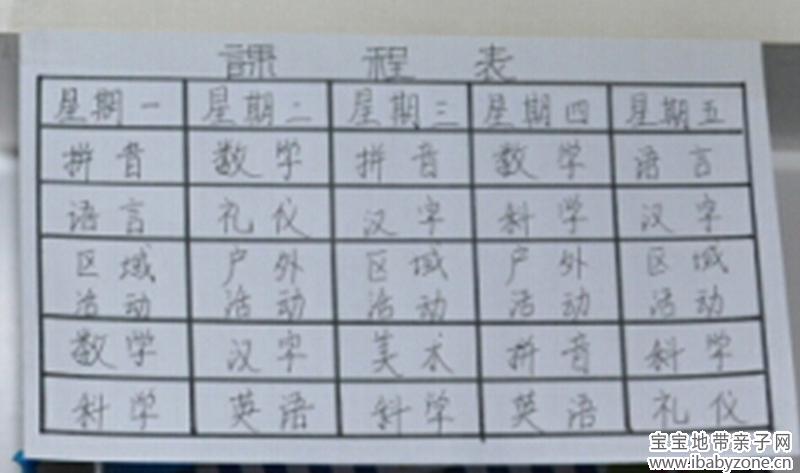 課程表
星期一 星期二 星期三 星期四 星期五
拼音 数学 拼音 数学 语言
语言 礼仪 汉字 科学 汉字
区域 户外 区域 户外 区域
活动 活动 活动 活动 活动
数学 汉字 美术 拼音 科学
科学 英语 科学 英语 礼仪
宝宝地带亲子网
www.ibabyzone.cn